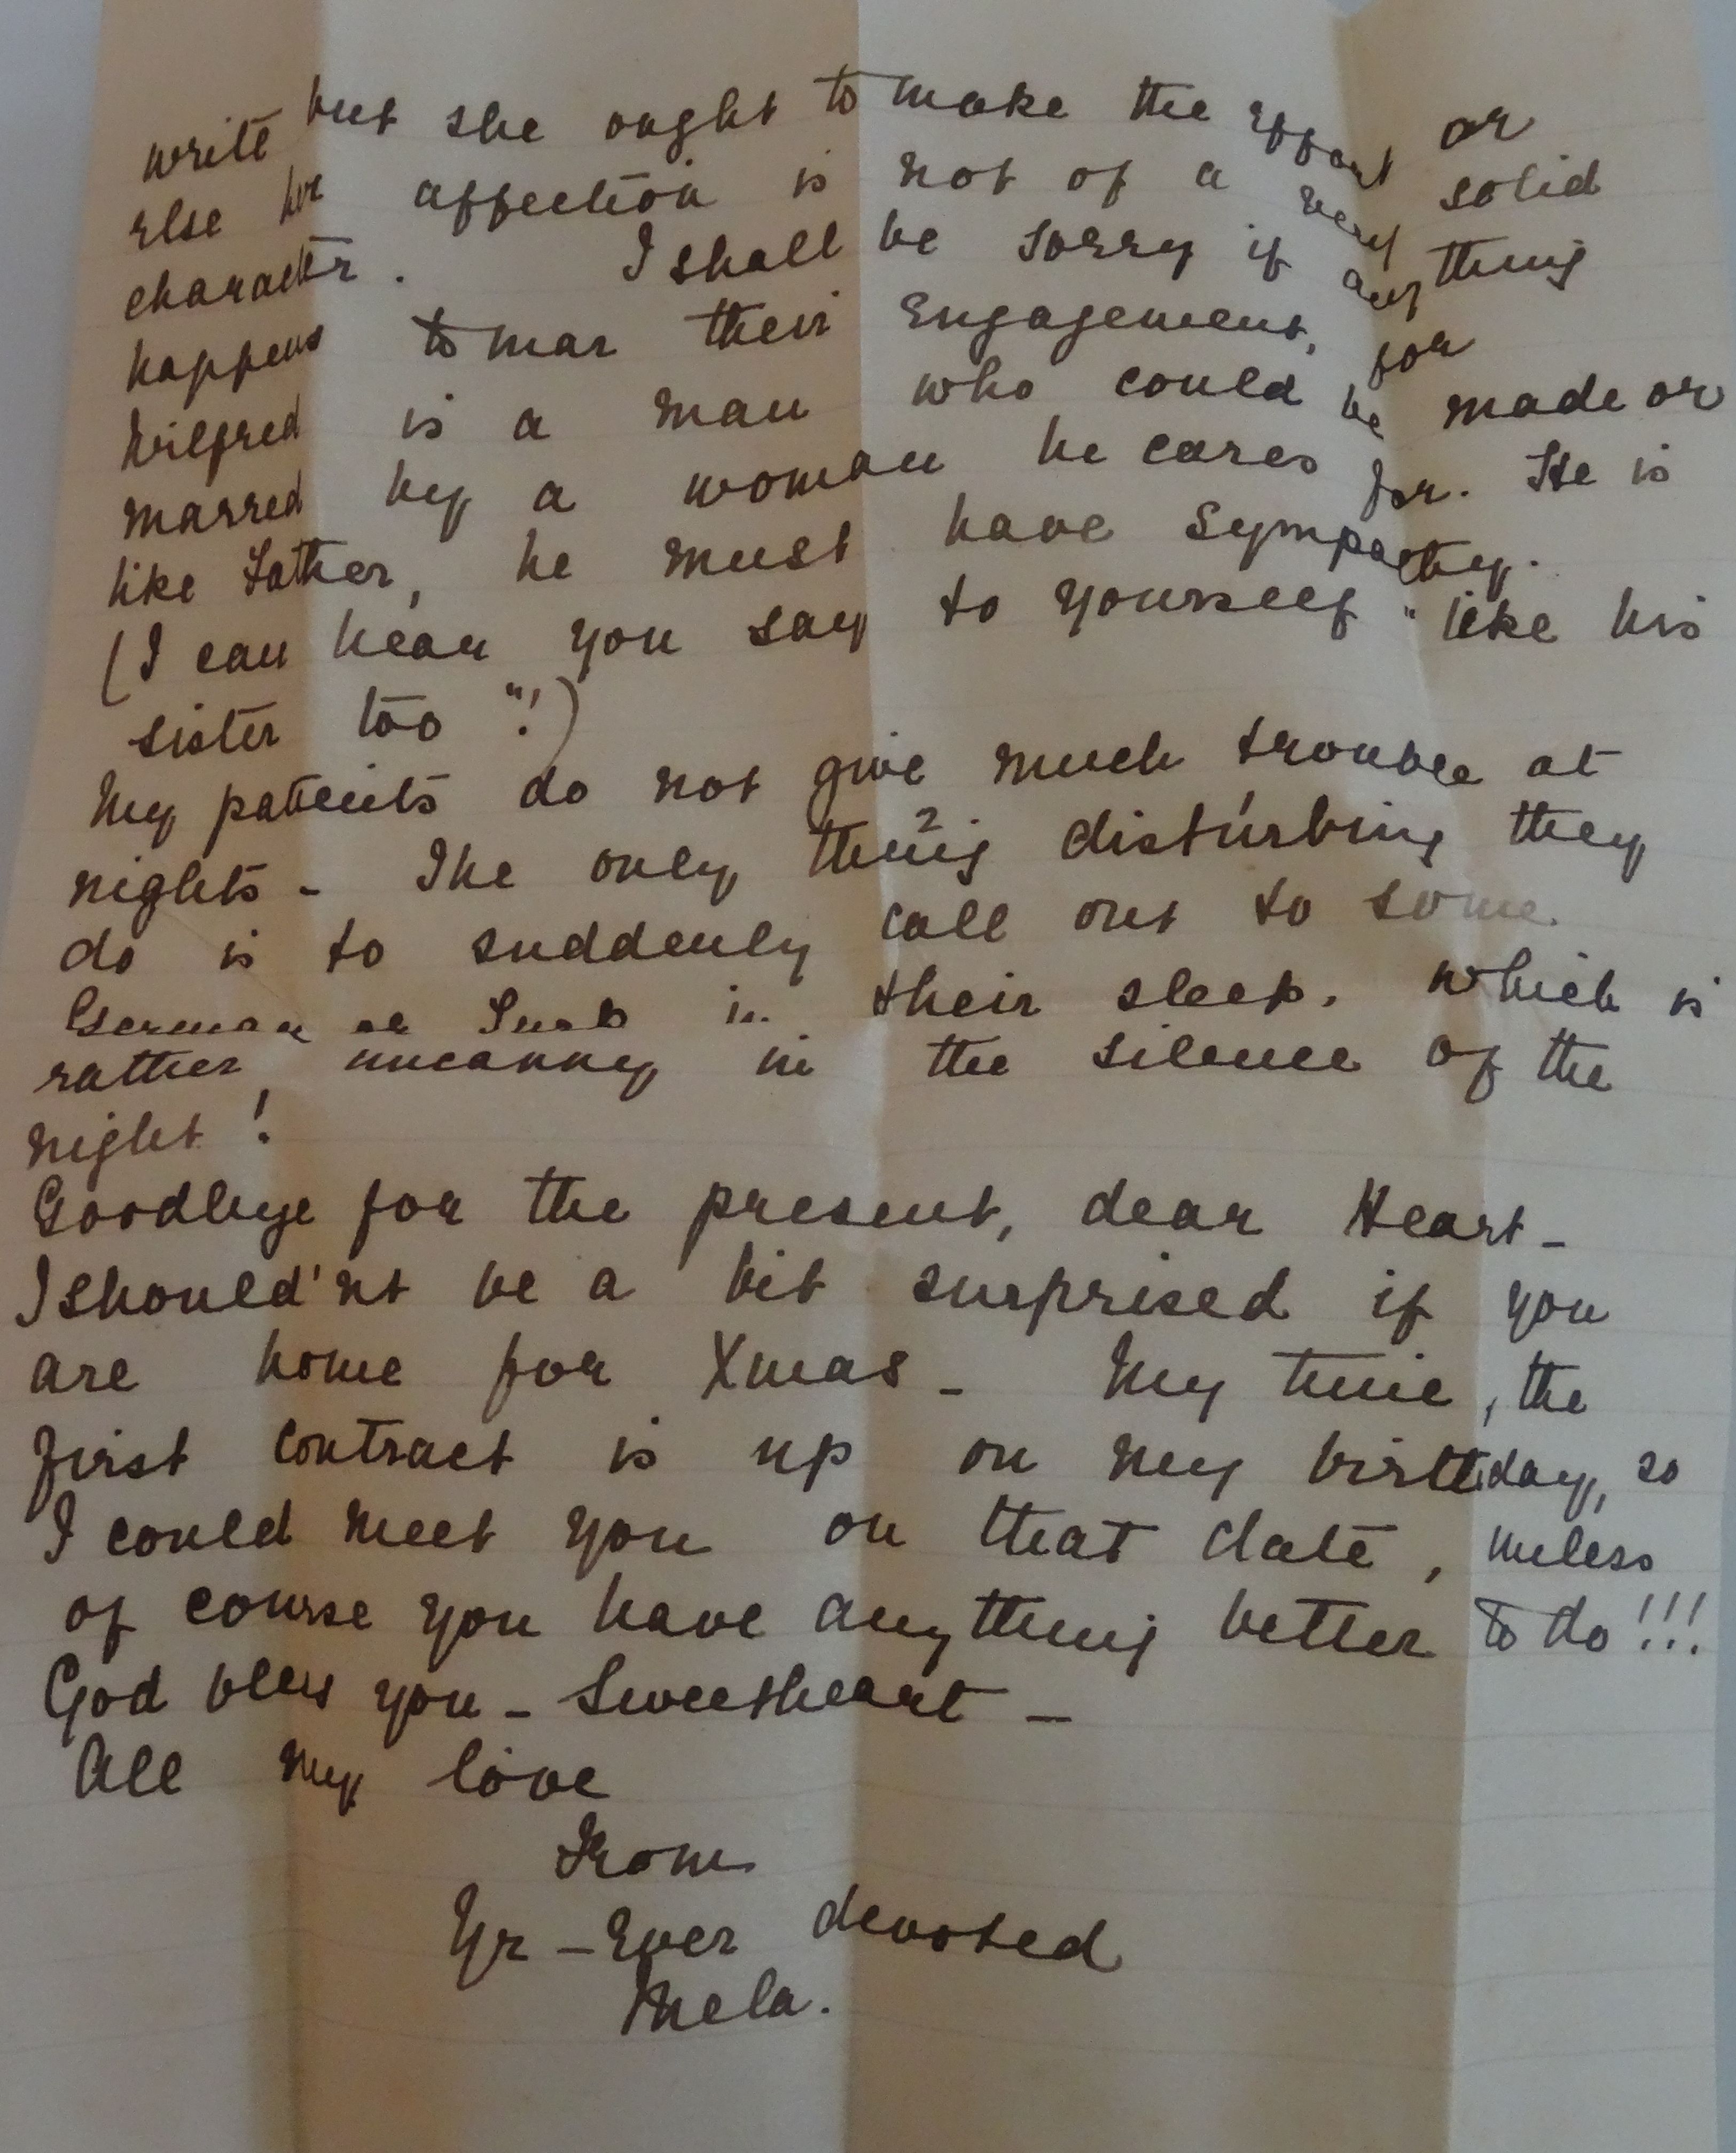 write but she ought to make the effort or
else her affection is not of a very solid
character. I shall be sorry if anything
happens to mar their Engagement, for
Wilfred is a man who could be made or
marred by a woman he cares for. He is
like Father, he must have Sympathy.
(I can hear you say to yourself "like his
sister too"!)
My patients do not give much trouble at
nights - The only thing disturbing they
do is to suddenly call out to some
German or Turk in their sleep. which is
rather uncanny in the silence of the
night!
Goodbye for the present, dear Heart -
I should'nt be a bit surprised if you
are home for Xmas - My time, the
first contract is up on my birthday, so
I could meet you on that date, unless
of course you have anything better to do!!!
God bless you - Sweetheart -
All my love
From
Yr - Ever devoted
Mela.
2